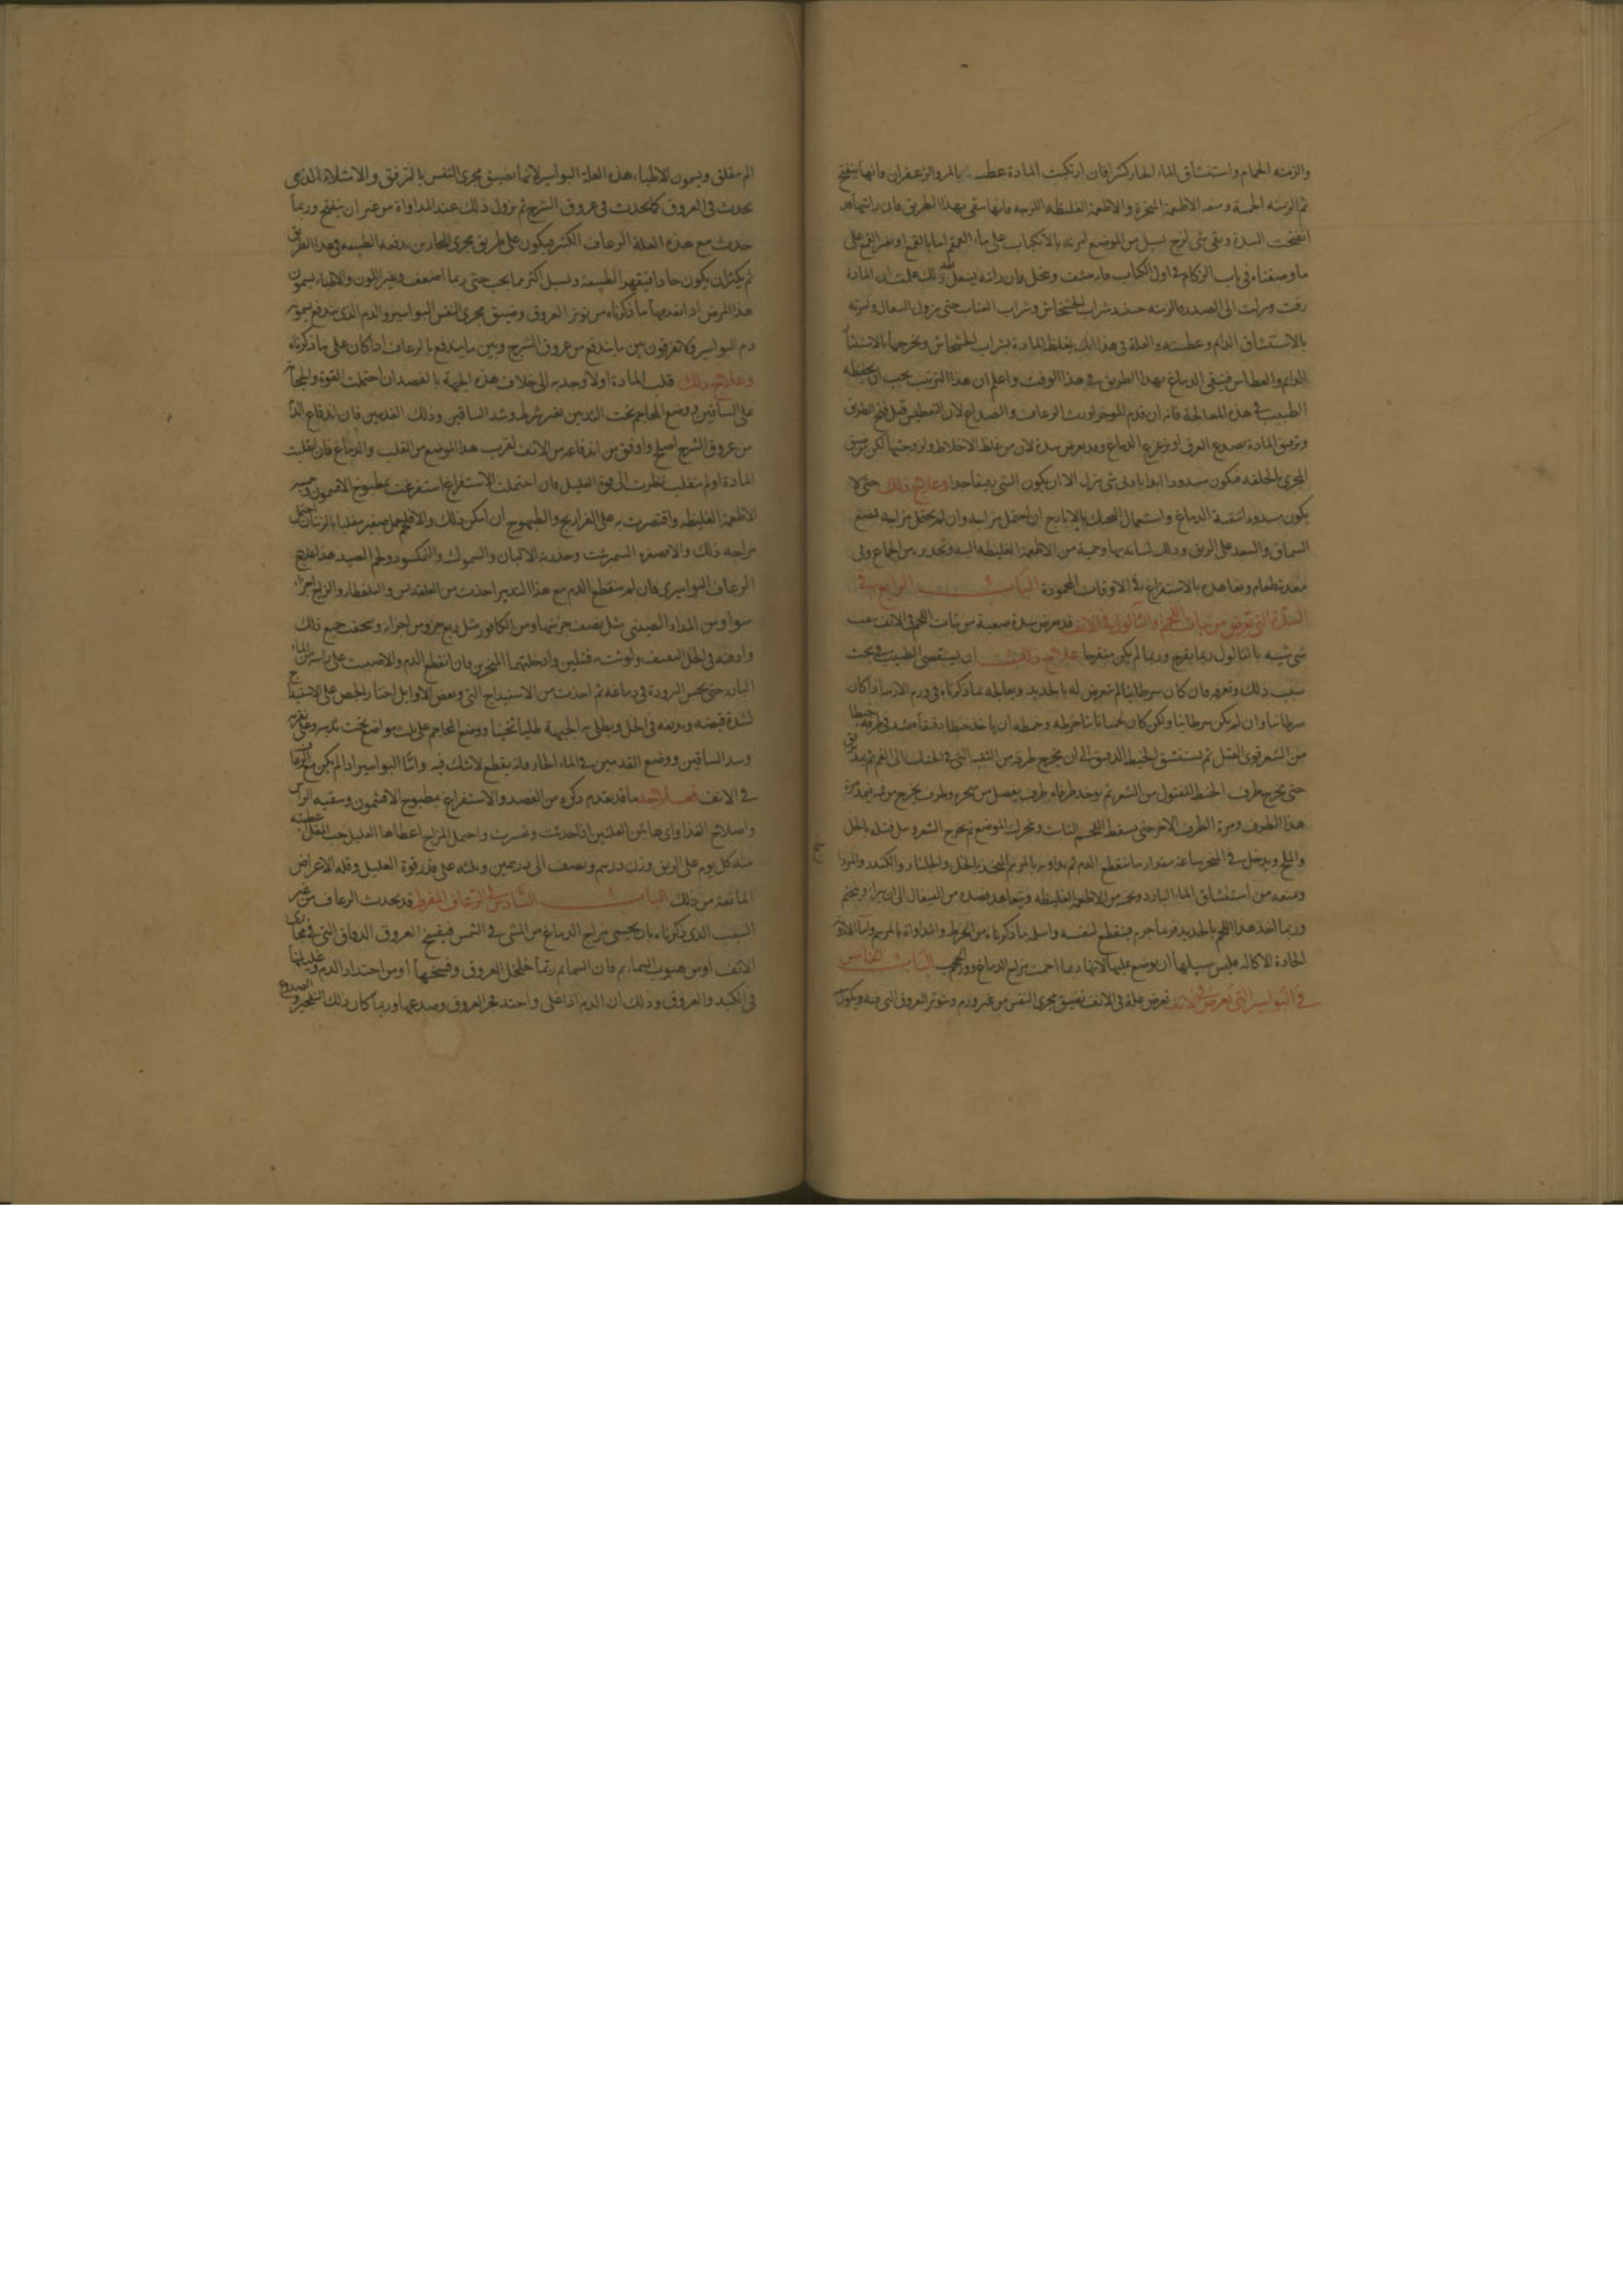 والزمته الحمام واستنشاق الماء الحار كثيرا فان ارتكبت المادة عطسته بالمر والزعفران فانها ينفتح
ثم الزمته الحمية ومنعه الاطعمة المبخرة والاطعمة الغليظه اللزجه فانها سقى بهذا الطريق فان رايتها قد
انفتحت السدة وبقى شى لزج يسيل من الموضع امرته بالانكباب على ماء القمقم اما بالقمع او بغير القمع على
ما وصفناه فى باب الزكام فى اول الكتاب فان رايته يسعل ذلك علمت ان المادة
رقت ونزلت الى الصدر فالزمته حينئذ شراب الخشخاش وشراب العناب حتى يزول السعال وامرته
بالاستنشاق الدايم وعطسته والعلة فى هذا انك تغلظ المادة بشراب الخشخاش وتخرجها بالاستنشا
الدايم والعطاس فينقى الدماغ بهذا الطريق فى هذا الوقت واعلم ان هذا الترتيب يجب ان يحفظه
الطبيب فى هذه المعالجة فانه ان قدم الموخر اورث الرعاف والصداع لان التعطيس قبل فتح الطريق
وترقيق المادة يصدع العرق او يزعزع الدماغ وقد يعرض سدة لا من غلظ الاخلاط ولزوجتها لكن من ضيق
المجرى الخلقه فيكون مسدودا ابدا يادنى شى ينزل الا ان يكون الشى رقيقا جدا وعلاج ذلك حتى لا
يكون مسدودا تنقية الدماغ واستعمال المحبك بالايارج ان احتمل مزاجه وان لم يحتمل مزاجه فمضغ
السماق والسعد على الريق ودلك لسانه بها وحمية من الاطعمة الغليظه وتحذيره من الجماع وفى
معدته طعام وتعاهده بالاستفراغ فى الاوقات المحمودة الباب الرابع فى
السدة التى تعرض من نبات اللحم والثالول فى الانف قد يعرض سدة صعبة من نبات اللحم فى الانف
شى شبيه بالثالول ربما يقرح وربما لم يكن متقرحا علاج ذلك ان يستقصى الطبيب فى بحث
سبب ذلك وتعرفه فان كان سرطانيا لم تتعرض له بالحديد ويعالجه بما ذكرناه فى ورم الانف اذا كان
سرطانيا وان لم يكن سرطانيا ولكن كان لحما نابتا خرطه وخرطه ان ياخذ خيطا دقيقا فيشد فى طرفه خيطا
من الشعر قوى الفتل ثم يستنشق الخيط الدقيق الى ان يخرج طرفه من الثقبه التى فى الحنك الى الفم ثم يمد
حتى يخرج طرف الخيط المفتول من الشعر ثم يوخذ طرفاه طرف يفصل من منخره وطرف يخرج من فيه فيمد مرة
هذا الطرف ومرة الطرف الاخر حتى يسقط اللحم النابت ويتحرك الموضع ثم يخرج الشعر وبل فتيله بالخل
والملح ويدخل فى المنخر ساعة مقدار ما ينقطع الدم ثم يداويه بالمرهم المتخذ بالخل والجلنار والكندر والمردا
ومنعه من استنشاق الماء البارد وتحميه من الاطعمه الغليظه ويتعاهد فصده من القيفال الى ان يبرا ويختم
وربما اخذ هذا اللحم بالحديد فربما جرم فينقطع لنفسه واسلمه ما ذكرناه من الخرط والمداواة بالمرهم واما الادوية
الحادة الاكاله فليس سبيلها ان يوضع عليها لانها ربما احمت مزاج الدماغ الباب الخامس
فى البواسير التى تعرض فى الانف تعرض علة فى الانف تضيق مجرى النفس من غير ورم وتتوتر العروق التى فيه ويكون
الم مقلق ويسمون الاطباء هذه العلة البواسير لانها تضيق مجرى النفس بالترفق والامتلاء الذى
يحدث فى العروق كما يحدث فى عروق الشرج ثم يزول ذلك عند المداواة من غير ان ينفتح وربما
حدث مع هذه العلة الرعاف الكثير فيكون على طريق مجرى البحارين بدفعه الطبيعه وهذا الطريق
ثم يكثر ان يكون حادا فيقهر الطبيعة ويسيل اكثر مما يجب حتى ربما اضعف وغير اللون والاطباء يسمون
هذا المرض اذا تقدمها ما ذكرناه من توتر العروق وضيق مجرى النفس البواسير والدم الذى يندفع يسمونه
دم البواسير فلا تعرفون بين ما يندفع من عروق الشرج وبين ما يندفع بالرعاف اذا كان على ما ذكرناه
وعلاج ذلك قلب المادة اولا وجذبه الى خلاف هذه الجهة بالفصد ان احتملت القوة والحجامة
على الساقين ووضع المحاجم تحت الثديين بغير شرط وشد الساقين ودلك القدمين فان اندفاع الدم
من عروق الشرج اصلح واوفق من اندفاعه من الانف لقرب هذا الموضع من القلب والدماغ فان انقلبت
المادة او لم تنقلب نظرت الى قوة العليل فان احتملت الاستفراغ استفرغت بمطبوخ الافتيمون وحميه
الاطعمة الغليظه واقتصرت به على الفراريج والطيهوج ان امكن ذلك والا فلحم حمل صغير مقليا بالزيت ان احتمل
مزاجه ذلك والا وحذرته الالبان والسموك والنمكسود ولحم الصيد هذا علاج
الرعاف البواسيرى فان لم ينقطع الدم مع هذا التدبير اخذت من القلقديس والقلقطار والزاج اجزاء
سوا ومن المداد الصينى مثل نصف جزئيهما ومن الكافور مثل ربع جزو من اجزائه وسحقت جميع ذلك
وادفه فى الخل الثقيف ولوثت به فتيلين وادخلتهما المنخرين فان انقطع الدم والا صببت على راسه من الماء
البارد حتى يحس البرودة فى دماغه ثم اخذت من الاسفيداج التى وبعض الاوايل اختار الجص على الاسفيداج
لشدة قبضه ويديفه فى الخل ويطلى به الجبهة طليا ثخينا ووضع المحاجم على ثلث مواضع تحت ثدييه وعلى
وشد الساقين ووضع القدمين فى الماء الحار فانه ينقطع لا شك فيه واما البواسير اذا لم يكن مع الرعاف
فى الانف فعلاجه ما قد تقدم ذكره من الفصد والاستفراغ بمطبوخ الافتيمون وسقيه الراس
واصلاح الغذا واى هاتين العلتين اذا حدثت وتعسرت واحتمل المزاج اعطاها العليل حب المقل
منه كل يوم على الريق وزن درهم ونصف الى درهمين وثلثه على قدر قوة العليل وقله الاعراض
المانعة من ذلك الباب السادس فى الرعاف المفرط قد يحدث الرعاف من غير
السبب الذى ذكرناه بان يحمى مزاج الدماغ من المشى فى الشمس فيفسخ العروق الدقاق التى فى مجارى
الانف او من هبوب السمايم فان السمايم ربما خلخل العروق وفسخها او من احتداد الدم وغليانها
فى الكبد والعروق وذلك ان الدم اذا غلى واحتد فجر العروق وصدعها وربما كان ذلك التفجير والصدوع